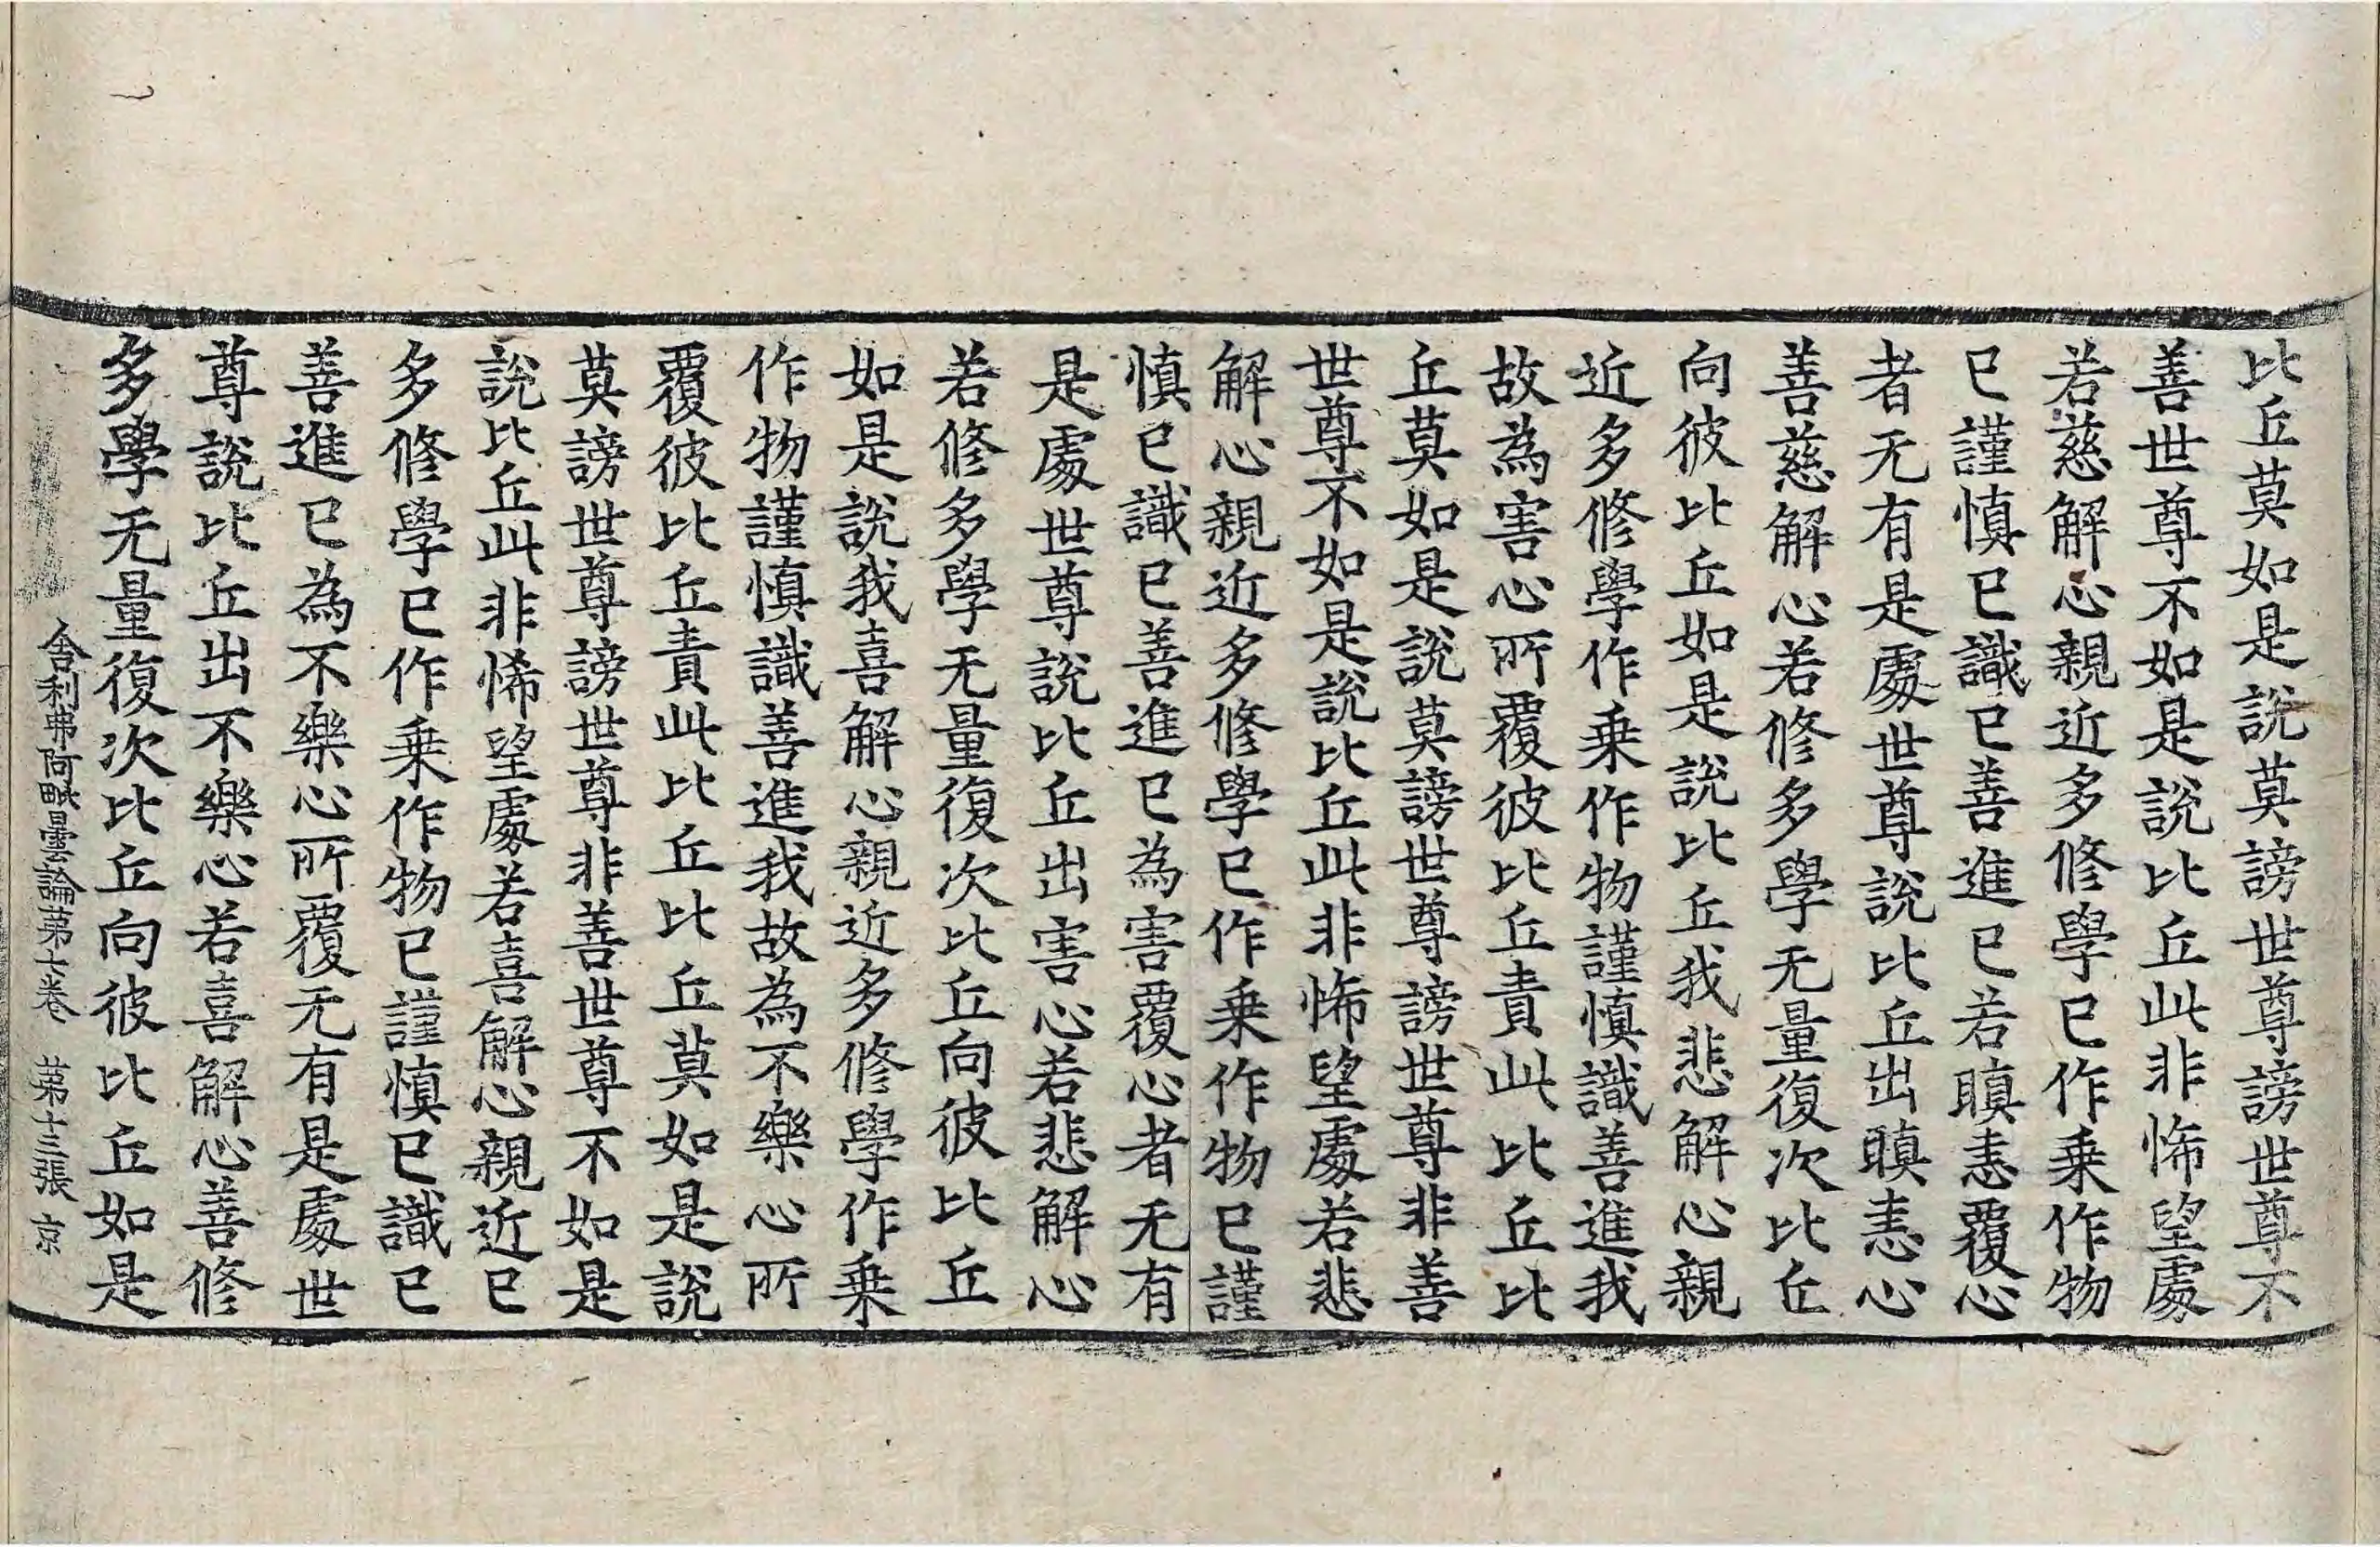 比丘莫如是說莫謗世尊謗世尊不
善世尊不如是說比丘此非悕望處
若慈解心親近多修學已作乗作物
已謹慎已識已善進已若瞋恚覆心
者无有是處世尊說比丘出瞋恚心
善慈解心若修多學无量復次比丘
向彼比丘如是說比丘我悲解心親
近多修學作乗作物謹慎識善進我
故為害心所覆彼比丘責此比丘比
丘莫如是說莫謗世尊謗世尊非善
世尊不如是說比丘此非悕望處若悲
解心親近多修學已作乗作物已謹
慎已識已善進已為害覆心者无有
是處世尊說比丘出害心若悲解心
若修多學无量復次比丘向彼比丘
如是說我喜解心親近多修學作乗
作物謹慎識善進我故為不樂心所
覆彼比丘責此比丘比丘莫如是說
莫謗世尊謗世尊非善世尊不如是
說比丘此非悕望處若喜解心親近已
多修學已作乗作物已謹慎已識已
善進已為不樂心所覆无有是處世
尊說比丘出不樂心若喜解心善修
多學无量復次比丘向彼比丘如是
舎利弗阿毗曇論苐十卷 苐十三張 京